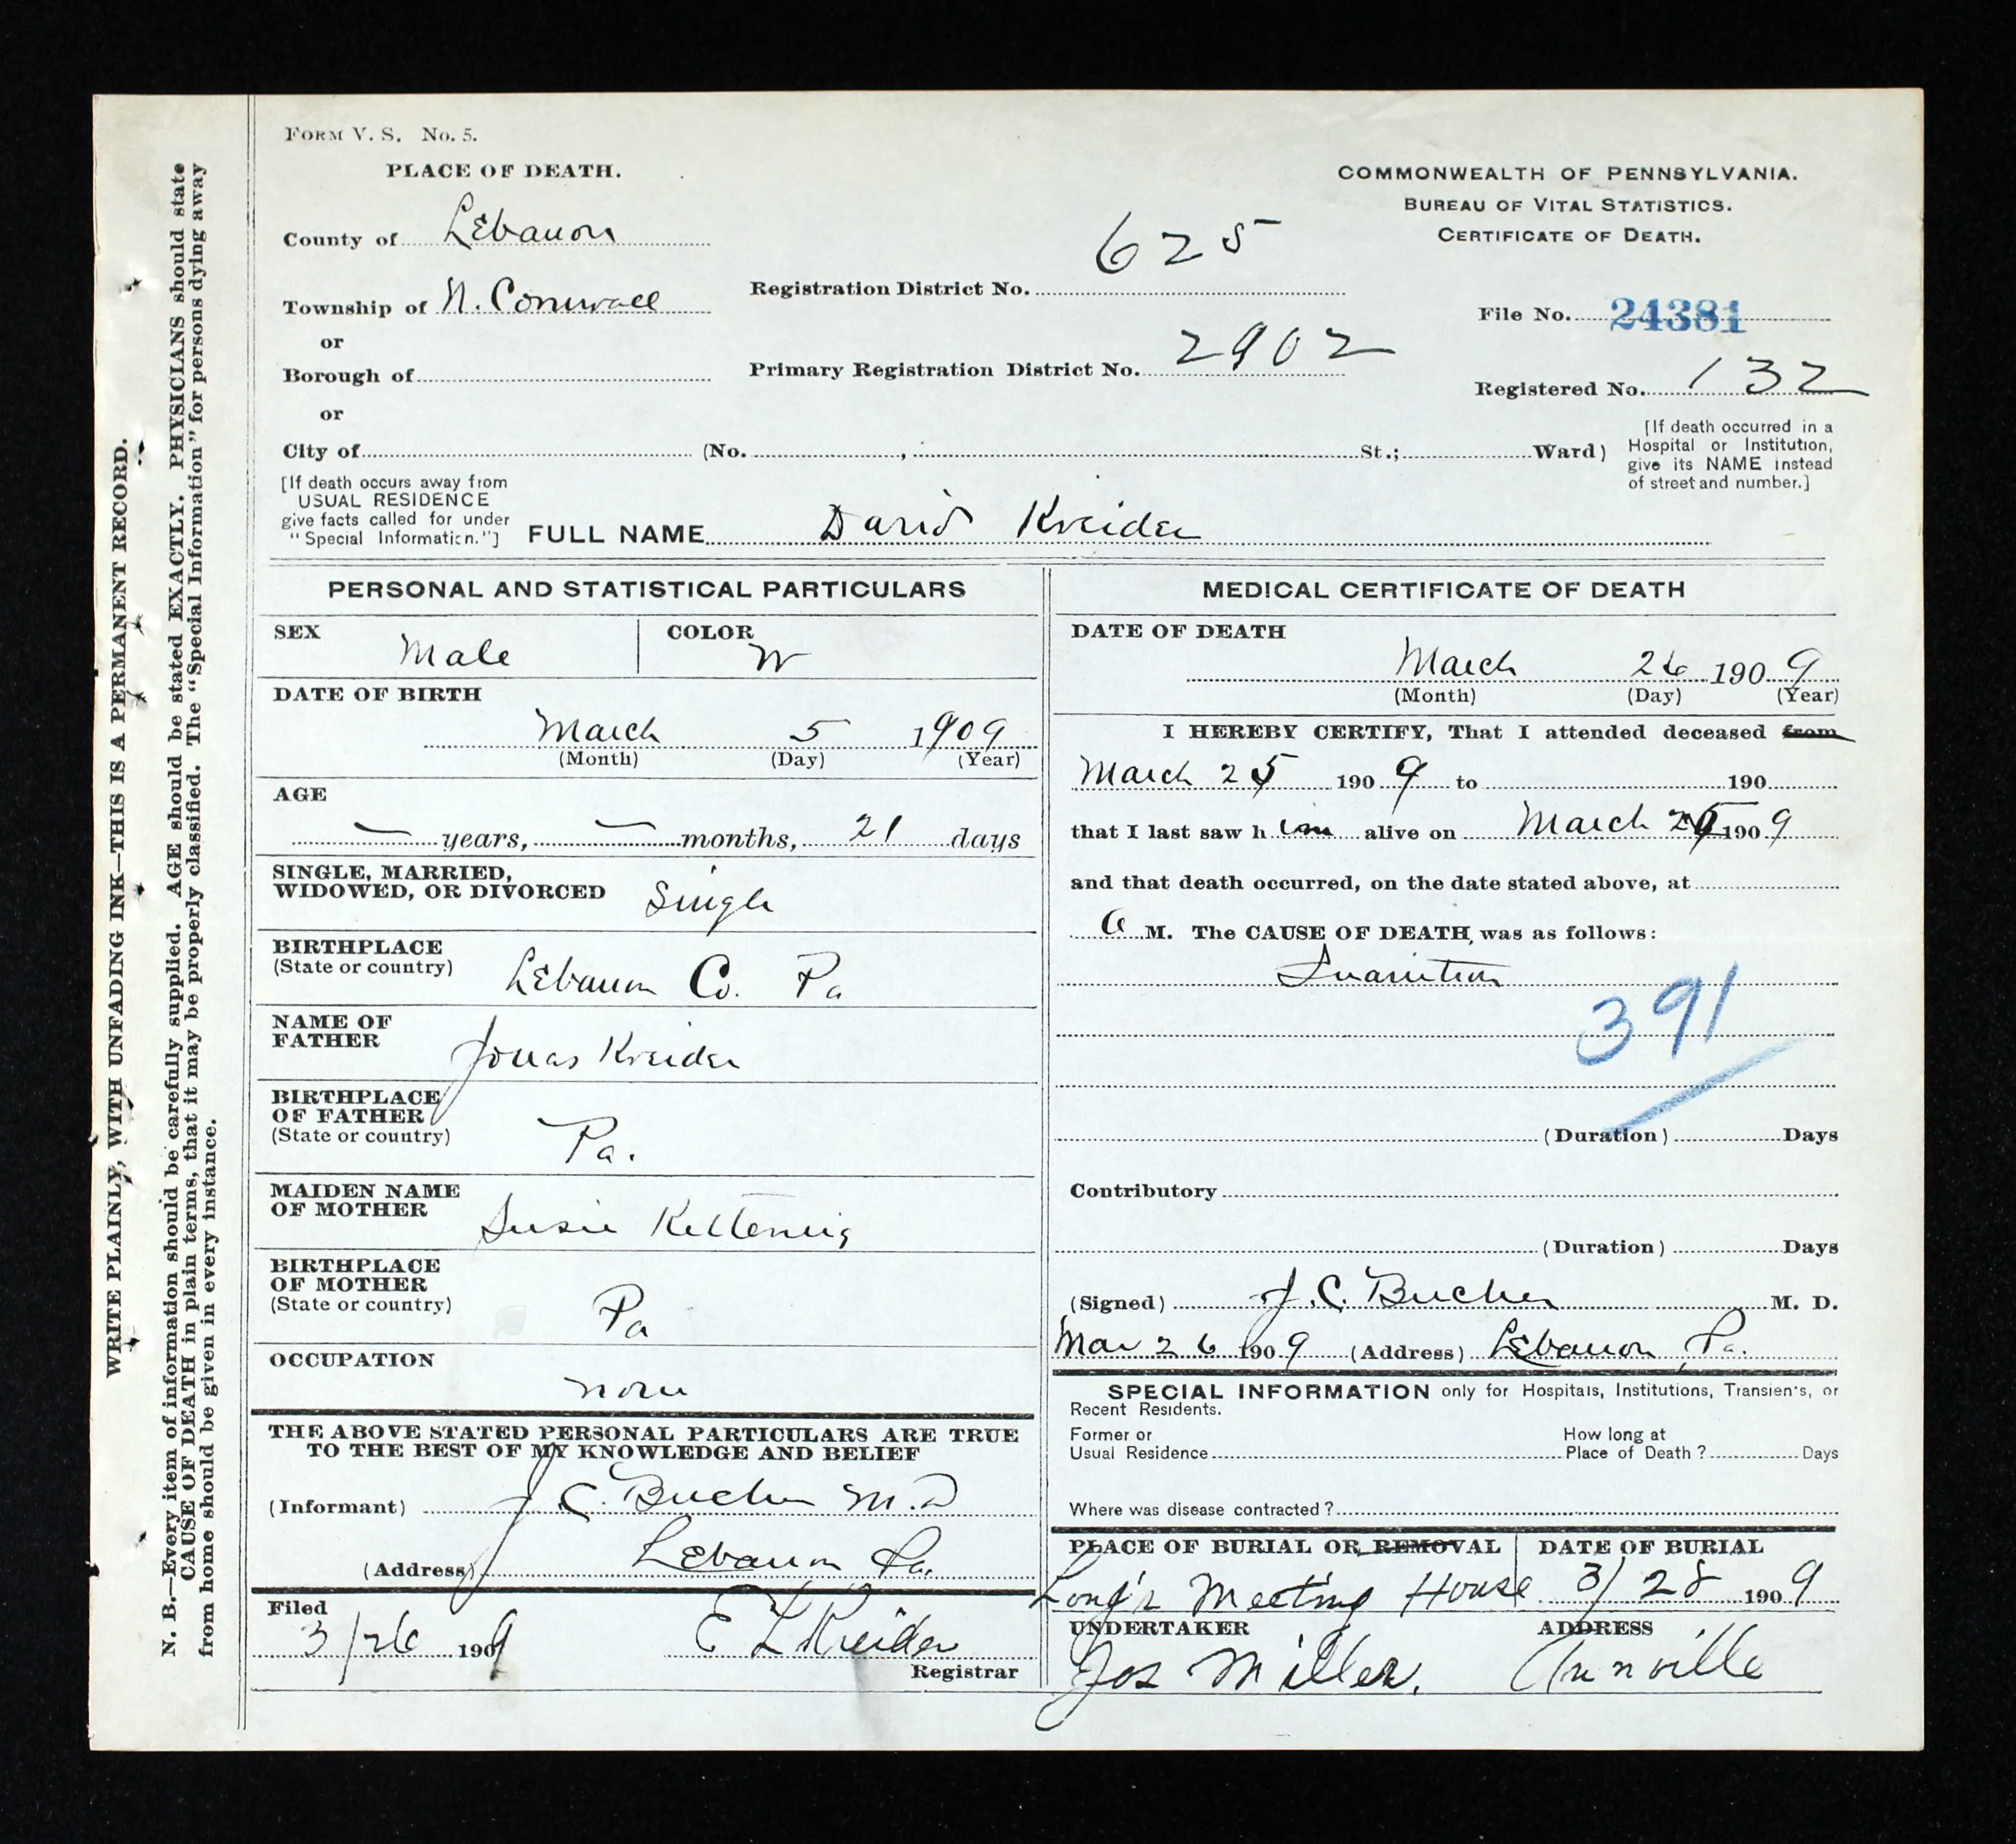 FORM V. S. No. 5.
PLACE OF DEATH.
COMMONWEALTH OF PENNSYLVANIA.
BUREAU OF VITAL STATISTICS.
CERTIFICATE OF DEATH.
County of Lebanon
Township of N. Cornwall
or
Borough of
or
City of (No. , St.; Ward)
Registration District No. 625
Primary Registration District No. 2902
File No. 24381
Registered No. 132
[If death occurred in a
Hospital or Institution,
give its NAME instead
of street and number.]
[If death occurs away from
USUAL RESIDENCE
give facts called for under
"Special Information."]
FULL NAME David Kreider
PERSONAL AND STATISTICAL PARTICULARS
SEX Male COLOR W
DATE OF BIRTH
March 5 1909
(Month) (Day) (Year)
AGE
— years, — months, 21 days
SINGLE, MARRIED,
WIDOWED, OR DIVORCED Single
BIRTHPLACE
(State or country) Lebanon Co. Pa
NAME OF
FATHER Jonas Kreider
BIRTHPLACE
OF FATHER
(State or country) Pa.
MAIDEN NAME
OF MOTHER Susie Kettering
BIRTHPLACE
OF MOTHER
(State or country) Pa
OCCUPATION
none
THE ABOVE STATED PERSONAL PARTICULARS ARE TRUE
TO THE BEST OF MY KNOWLEDGE AND BELIEF
(Informant) J. C. Bucher M.D
(Address) Lebanon Pa.
Filed
3/26 1909 E L Kreider
Registrar
MEDICAL CERTIFICATE OF DEATH
DATE OF DEATH
March 26 1909
(Month) (Day) (Year)
I HEREBY CERTIFY, That I attended deceased from
March 25 1909 to 190
that I last saw him alive on March 25 1909
and that death occurred, on the date stated above, at
a M. The CAUSE OF DEATH was as follows:
Inanition
391
(Duration) Days
Contributory
(Duration) Days
(Signed) J. C. Bucher M. D.
Mar 26 1909 (Address) Lebanon Pa.
SPECIAL INFORMATION only for Hospitals, Institutions, Transients, or
Recent Residents.
Former or
Usual Residence
How long at
Place of Death? Days
Where was disease contracted?
PLACE OF BURIAL OR REMOVAL DATE OF BURIAL
Long's Meeting House 3/28 1909
UNDERTAKER ADDRESS
Jos Miller. Annville
WRITE PLAINLY, WITH UNFADING INK—THIS IS A PERMANENT RECORD.
N. B.—Every item of information should be carefully supplied. AGE should be stated EXACTLY. PHYSICIANS should state
CAUSE OF DEATH in plain terms, that it may be properly classified. The "Special Information" for persons dying away
from home should be given in every instance.